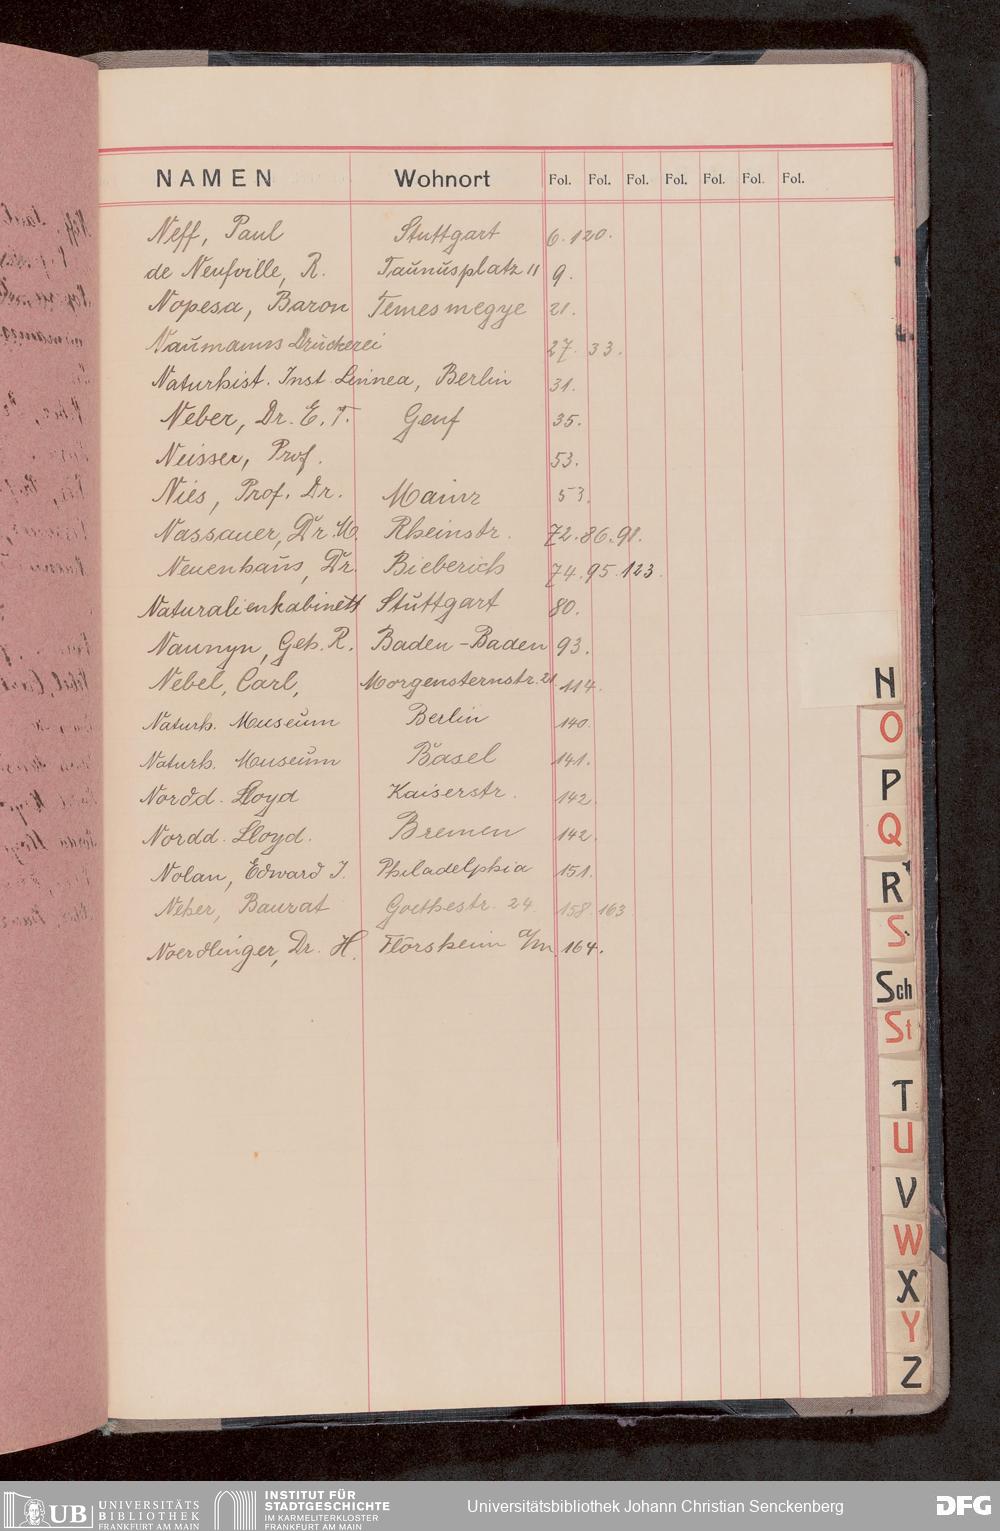 NAMEN Wohnort Fol. Fol. Fol. Fol. Fol. Fol. Fol.
Neff, Paul Stuttgart 6. 120.
de Neufville, R. Taunusplatz 11 9.
Nopcsa, Baron Temesmegye 21.
Naumanns Druckerei 27. 33.
Naturhist. Inst. Linnea, Berlin 31.
Neber, Dr. E. T. Genf 35.
Neisser, Prof. 53.
Nies, Prof. Dr. Mainz 53.
Nassauer, Dr. M. Rheinstr. 72. 86. 91.
Neuenhaus, Dr. Bieberich 74. 95. 123.
Naturalienkabinett Stuttgart 80.
Naunyn, Geh. R. Baden-Baden 93.
Nebel, Carl, Morgensternstr. 21 114.
Naturh. Museum Berlin 140.
Naturh. Museum Basel 141.
Nordd. Lloyd Kaiserstr. 142.
Nordd. Lloyd. Bremen 142.
Nolan, Edward J. Philadelphia 151.
Neher, Baurat Goethestr. 24. 158. 163.
Noerdlinger, Dr. H. Flörsheim a/m. 164.
N
O
P
Q
R
S
Sch
St
T
U
V
W
X
Y
Z
UB UNIVERSITÄTS
BIBLIOTHEK
FRANKFURT AM MAIN
INSTITUT FÜR
STADTGESCHICHTE
IM KARMELITERKLOSTER
FRANKFURT AM MAIN
Universitätsbibliothek Johann Christian Senckenberg
DFG